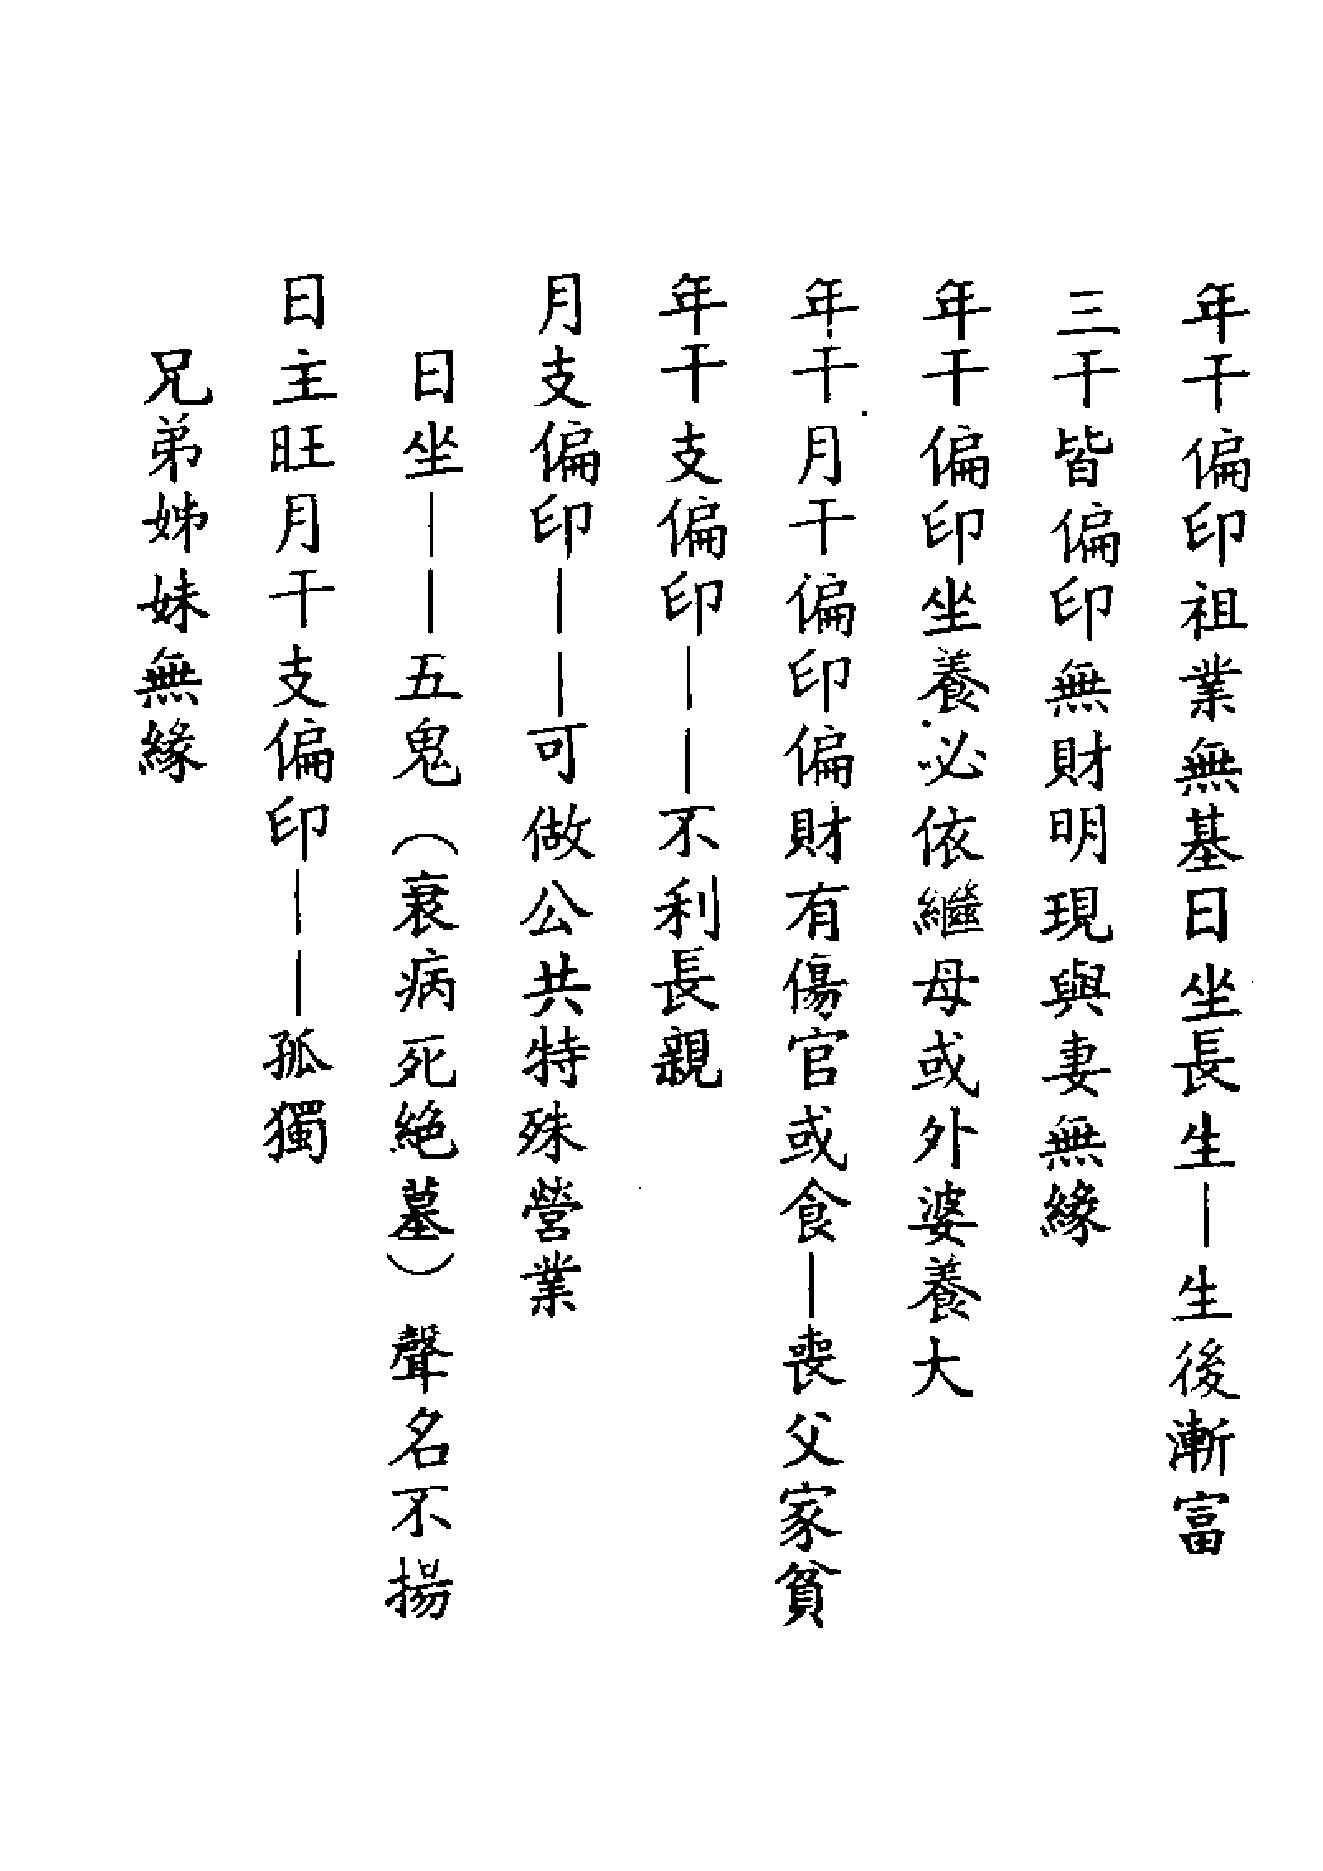 年干偏印祖業無基日坐長生—生後漸富
三干皆偏印無財明現與妻無緣
年干偏印坐養必依繼母或外婆養大
年干月干偏印偏財有傷官或食—喪父家貧
年干支偏印——不利長親
月支偏印——可做公共特殊營業
日坐——五鬼（衰病死絕墓）聲名不揚
日主旺月干支偏印——孤獨
兄弟姊妹無緣